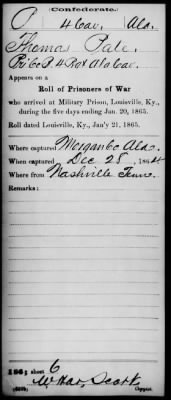 Confederate.
P 4 Cav. Ala.
Thomas Pate.
Pri Co P. 4 Reg't Ala Cav.
Appears on a
Roll of Prisoners of War
who arrived at Military Prison, Louisville, Ky.,
during the five days ending Jan. 20, 1865.
Roll dated Louisville, Ky., Jan'y 21, 1865.
Where captured Morgan Co Ala.
When captured Dec 28, 1864
Where from Nashville Tenn.
Remarks:
sheet 6
Copyist.